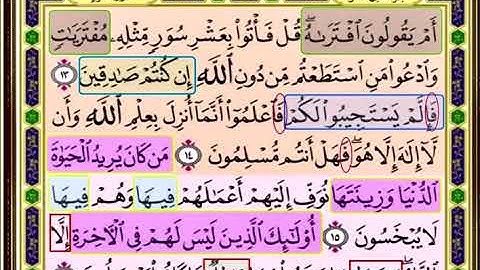 أَمْ يَقُولُونَ ٱفْتَرَىٰهُ ۖ قُلْ فَأْتُوا۟ بِعَشْرِ سُوَرٍ مِّثْلِهِۦ مُفْتَرَيَٰتٍ
وَٱدْعُوا۟ مَنِ ٱسْتَطَعْتُم مِّن دُونِ ٱللَّهِ إِن كُنتُمْ صَٰدِقِينَ ١٣
فَإِلَّمْ يَسْتَجِيبُوا۟ لَكُمْ فَٱعْلَمُوٓا۟ أَنَّمَآ أُنزِلَ بِعِلْمِ ٱللَّهِ وَأَن
لَّآ إِلَٰهَ إِلَّا هُوَ ۖ فَهَلْ أَنتُم مُّسْلِمُونَ ١٤ مَن كَانَ يُرِيدُ ٱلْحَيَوٰةَ
ٱلدُّنْيَا وَزِينَتَهَا نُوَفِّ إِلَيْهِمْ أَعْمَٰلَهُمْ فِيهَا وَهُمْ فِيهَا
لَا يُبْخَسُونَ ١٥ أُو۟لَٰٓئِكَ ٱلَّذِينَ لَيْسَ لَهُمْ فِى ٱلْءَاخِرَةِ إِلَّا